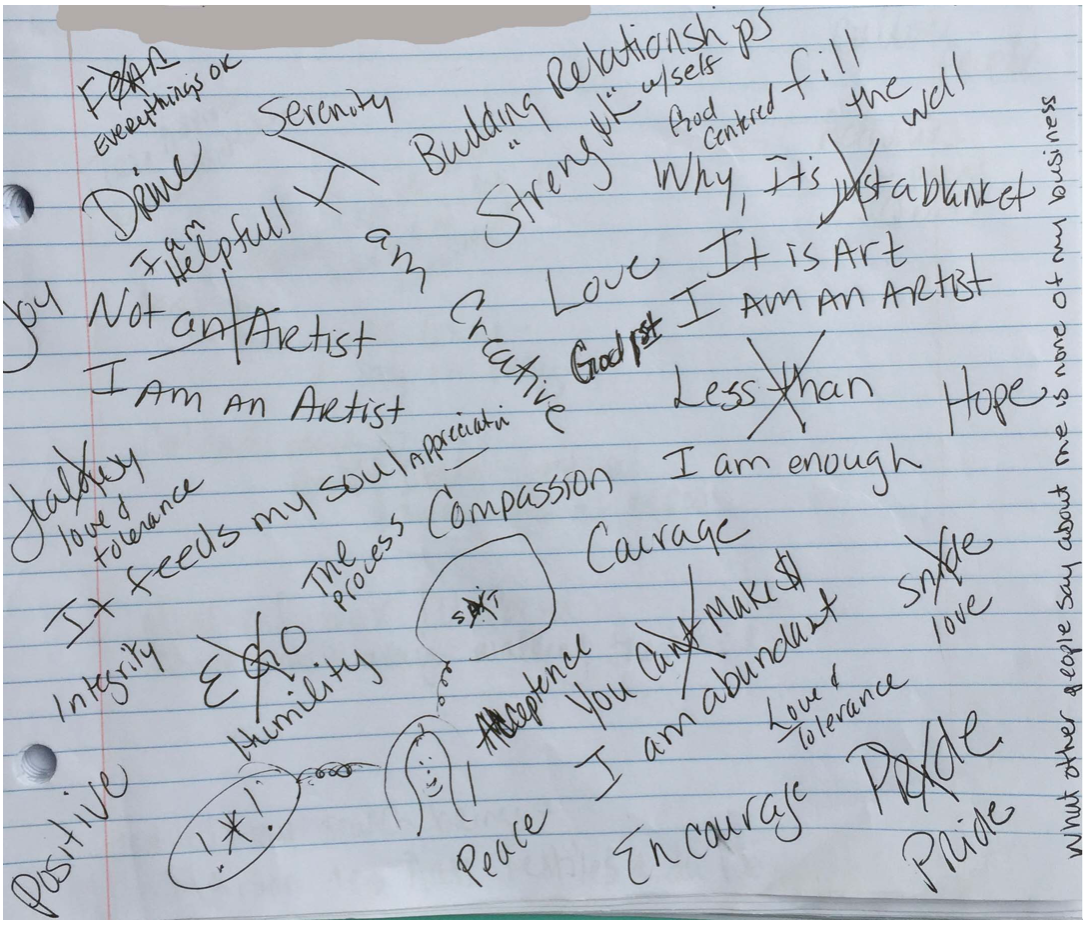 FEAR
EVERYthings OK
Serenity
Building Relationships
Strength w/self
God Centered
fill the well
Drive
I am Helpfull
I am Creative
Why, Its just a blanket
Love It is Art
Joy
Not an Artist
God 1st I AM AN ARTIST
I AM AN ARTIST
Less than
Hope
I am enough
Jealousy
love & tolerance
It feeds my soul
Appreciatin
The process
Compassion
Caurage
SHIT
Snide
love
Integrity
EGO
Humility
Acceptence
You Can't Make $
I am abundant
Love & Tolerance
!*!
Positive
Peace
Encourage
Pride
Pride
What other people say about me is none of my business